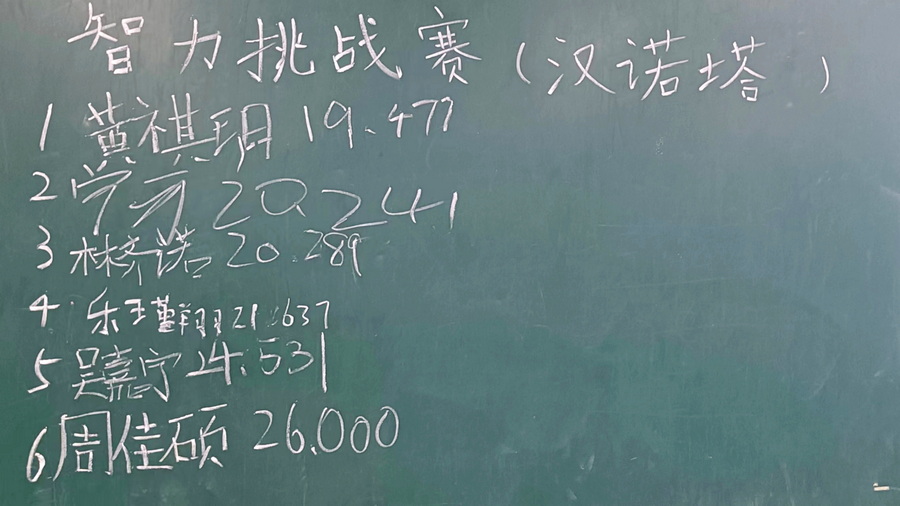 智力挑战赛（汉诺塔）
1 黄祺玥 19.477
2 20.241
3 林齐诺 20.289
4 乐瑾翔 21.637
5 吴嘉宁 24.531
6 周佳硕 26.000